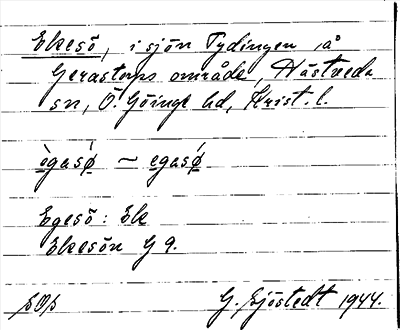 Ekesö, i sjön Tydingen, å
Gerastorps område, Hästveda
sn, Ö. Göinge hd, Krist. l.
ègasǿ ~ egasǿ
Egesö: Ek
Ekesön G 9.
G. Sjöstedt 1944.